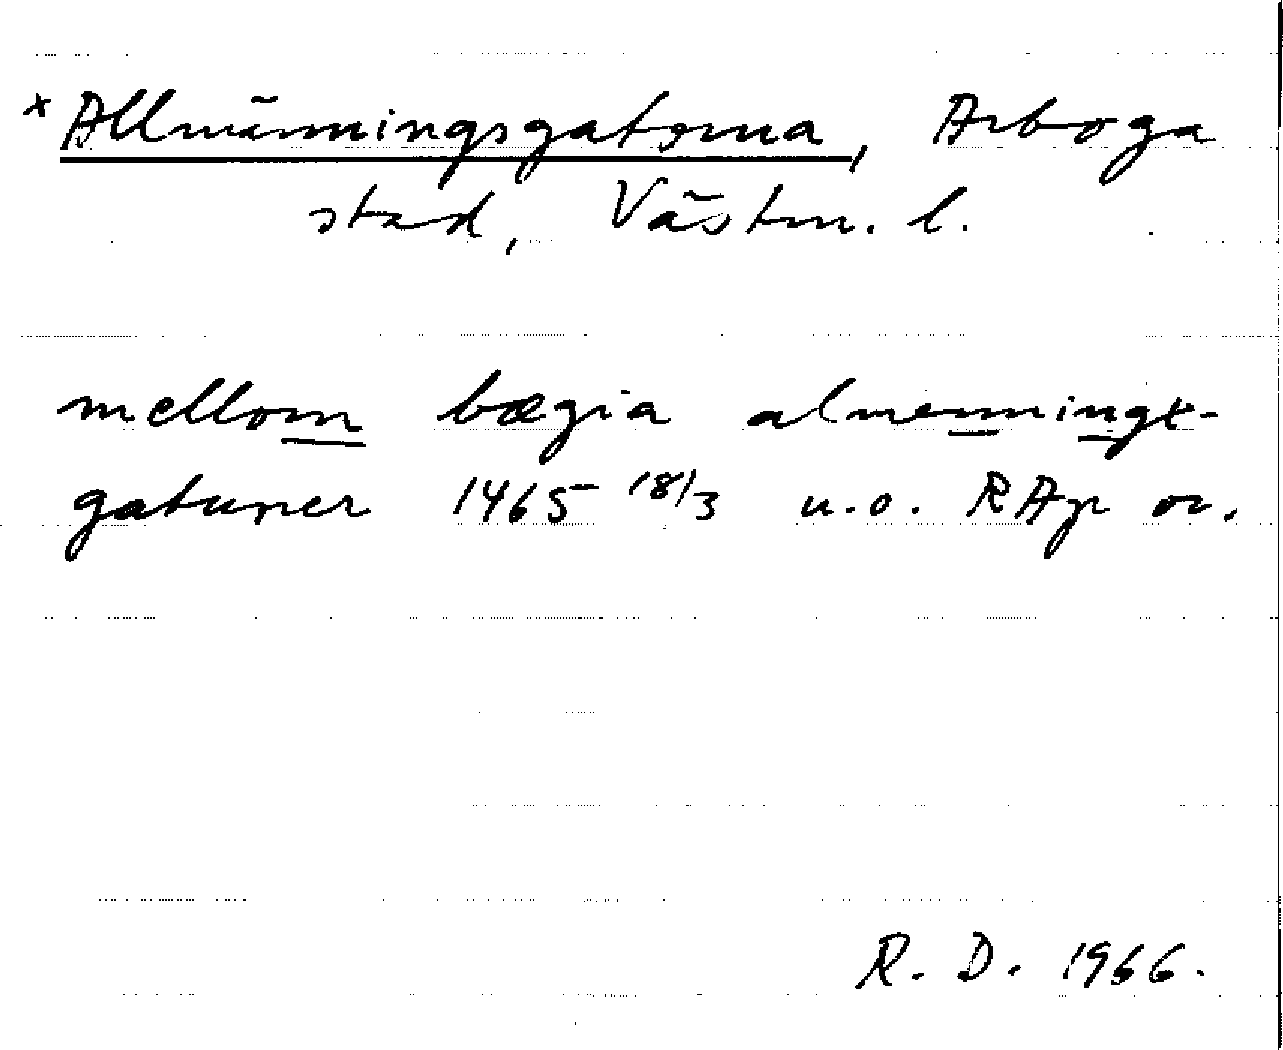 *Allmänningsgatorna, Arboga
stad, Västm. l.
mellom bægia almenningx-
gatuner 1465 18/3 u.o. RAp or.
R. D. 1966.